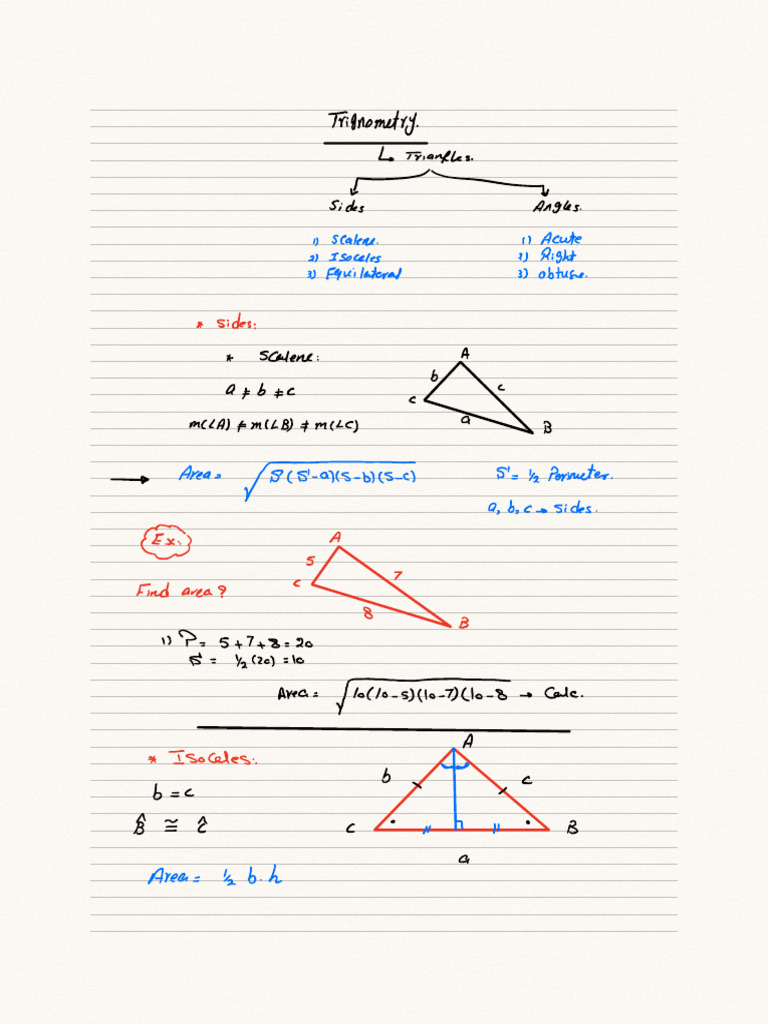 Trignometry.
↳ Triangles.
Sides Angles.
1) Scalene. 1) Acute
2) Isoceles 2) Right
3) Equilateral 3) obtuse.
* sides:
* Scalene:
a ≠ b ≠ c
m(∠A) ≠ m(∠B) ≠ m(∠C)
A
b c
C
a
B
→ Area = √S(S-a)(S-b)(S-c) S = 1/2 Perimeter.
a, b, c → sides.
Ex:
Find area?
A
5
7
C
8
B
1) P = 5+7+8 = 20
S = 1/2 (20) = 10
Area = √10(10-5)(10-7)(10-8 → Calc.
* Isoceles:
b = c
B̂ ≅ Ĉ
A
b c
C B
a
Area = 1/2 b.h